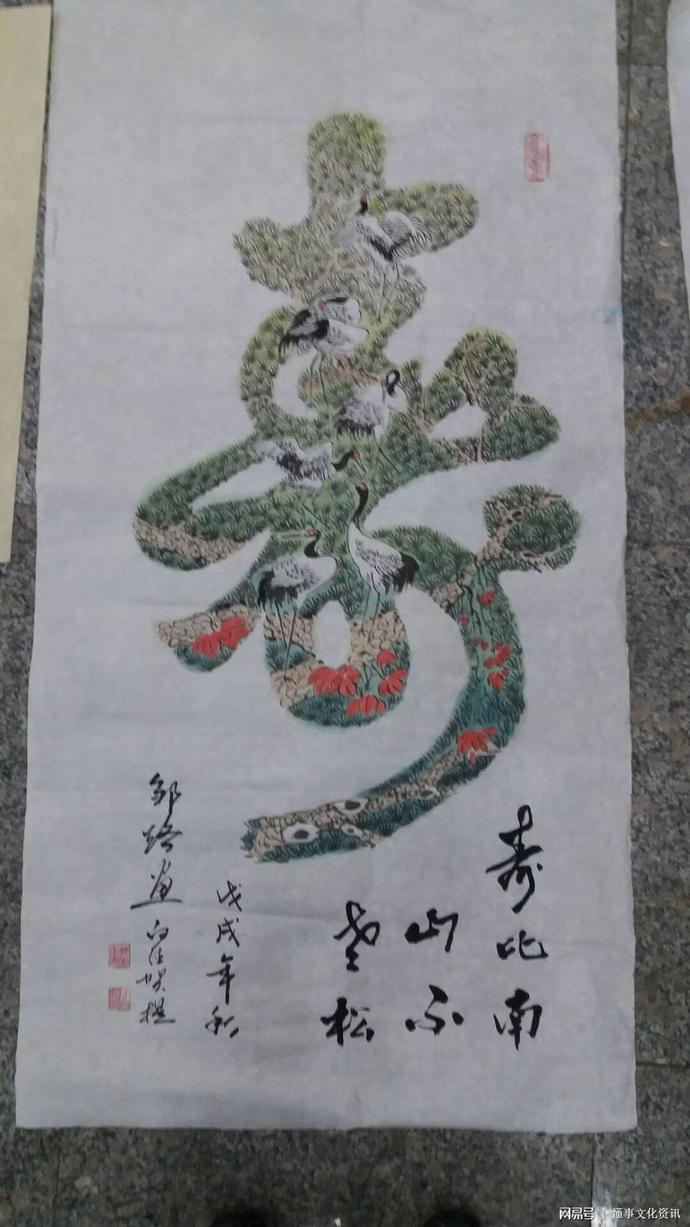 寿
寿比南
山不
老松
戊戌年秋
邹路画
网易号 | 懂事文化资讯